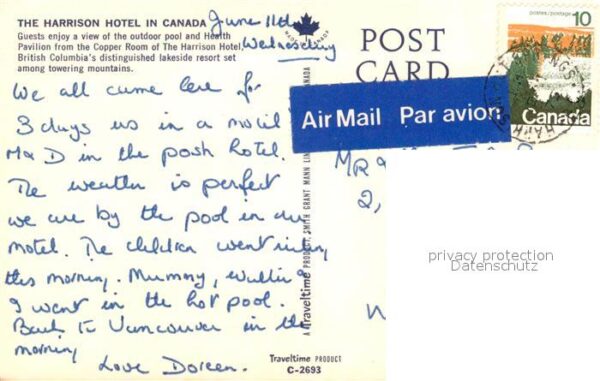 THE HARRISON HOTEL IN CANADA
Guests enjoy a view of the outdoor pool and Health
Pavilion from the Copper Room of The Harrison Hotel,
British Columbia's distinguished lakeside resort set
among towering mountains.
June 11th
Wednesday
MADE CANADA
We all came here for
3 days us in a motel
M & D in the posh hotel.
The weather is perfect
we are by the pool in our
motel. The children went
this morning. Mummy,
I went in the hot pool.
Back to Vancouver in the
morning
Love Doreen.
A Traveltime PRODUCT SMITH GRANT MANN CANADA
Traveltime PRODUCT
C-2693
POST
CARD
Air Mail Par avion
postes/postage
10
Canada
MR
2,
privacy protection
Datenschutz